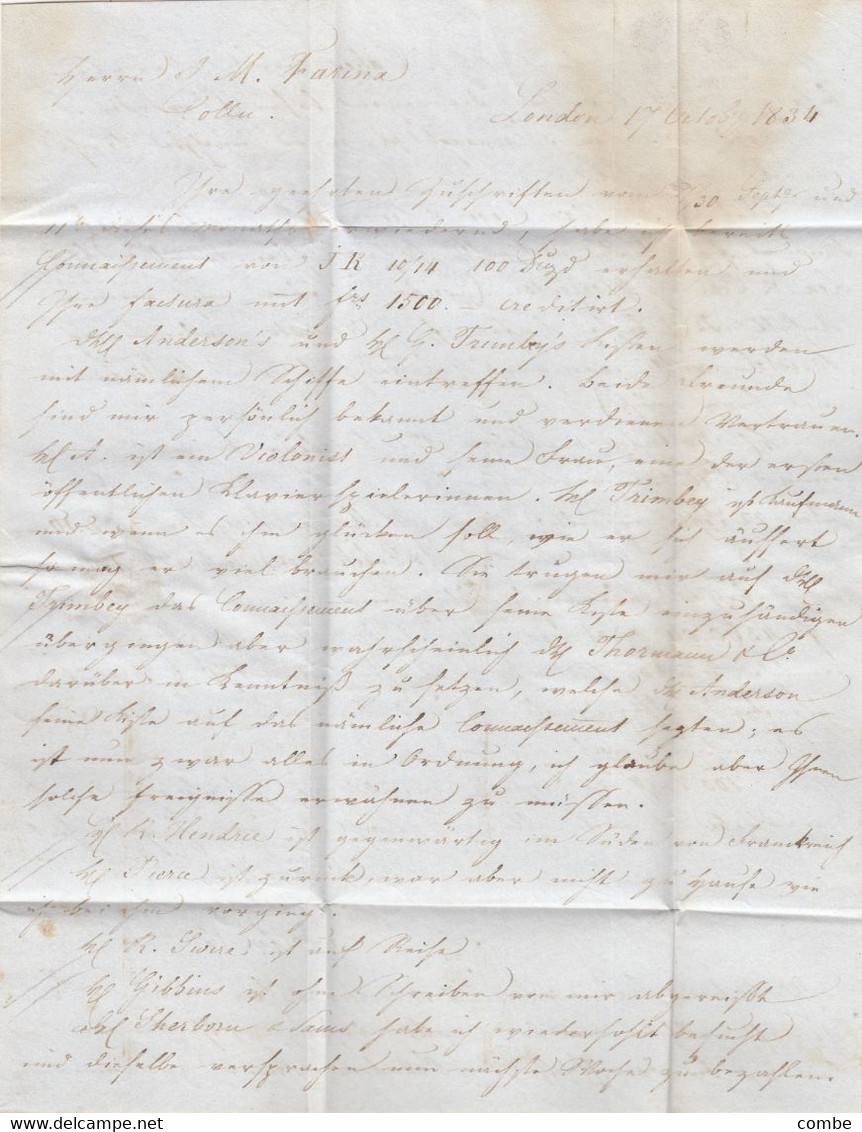 Herrn J M. Farina
Cölln.
London 17 Octobr 1834
Ihre geehrten Zuschriften vom 30 Septbr und
11 dieses erwiedernd, habe ich bereits
Connaissement von JR 10/14 100 Duzd erhalten und
Ihre factura mit frs 1500. – creditirt.
Anderson's und H G. Trimbey's Kisten werden
mit nämlichem Schiffe eintreffen. Beide Freunde
sind mir persönlich bekannt und verdienen Vertrauen.
H A. ist ein Violonist und seine Frau, eine der ersten
öffentlichen Klavierspielerinnen. H Trimbey ist Kaufmann
und wenn es ihm glücken soll, wie er sich äussert
so mag er viel brauchen. Sie trugen mir auf
Trimbey das Connaissement über seine Kiste einzuhändigen
übergingen aber wahrscheinlich Thormann & Co.
darüber in Kenntniß zu setzen, welche Anderson
seine Kiste auf das nämliche Connaissement sezten; es
ist nun zwar alles in Ordnung, ich glaube aber Ihnen
solche Ereignisse erwähnen zu müssen.
H K. Hendrie ist gegenwärtig im Süden von Franckreich
H Pierce ist zurück, war aber nicht zu Hause wie
ich bei ihm vorging.
H R. Swire ist auf Reise
H Gibbins ist ohne Schreiben von mir abgereißt
Sherborn & Sams habe ich wiederholt besucht
und dieselbe versprachen nun nächste Woche zu bezahlen.
combe